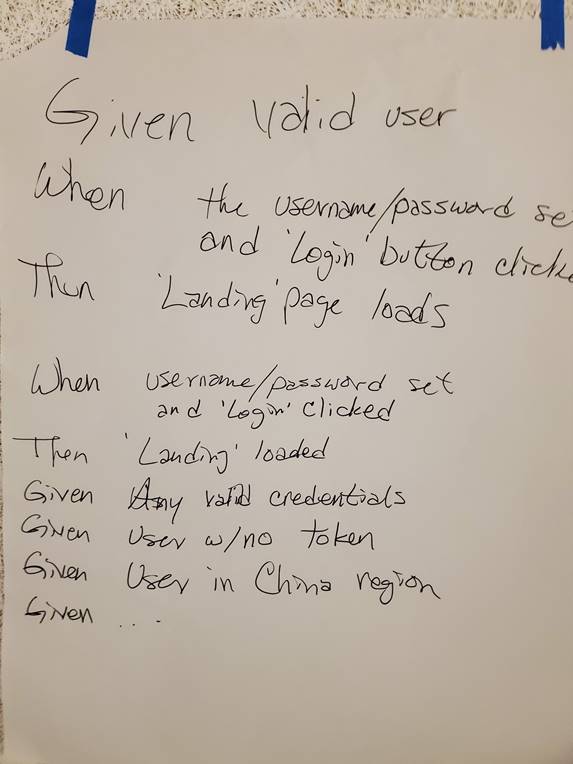 Given valid user
When the username/password se
and 'Login' button clicke
Then 'Landing' page loads
When username/password set
and 'Login' clicked
Then 'Landing' loaded
Given Any valid credentials
Given User w/no token
Given User in China region
Given ....